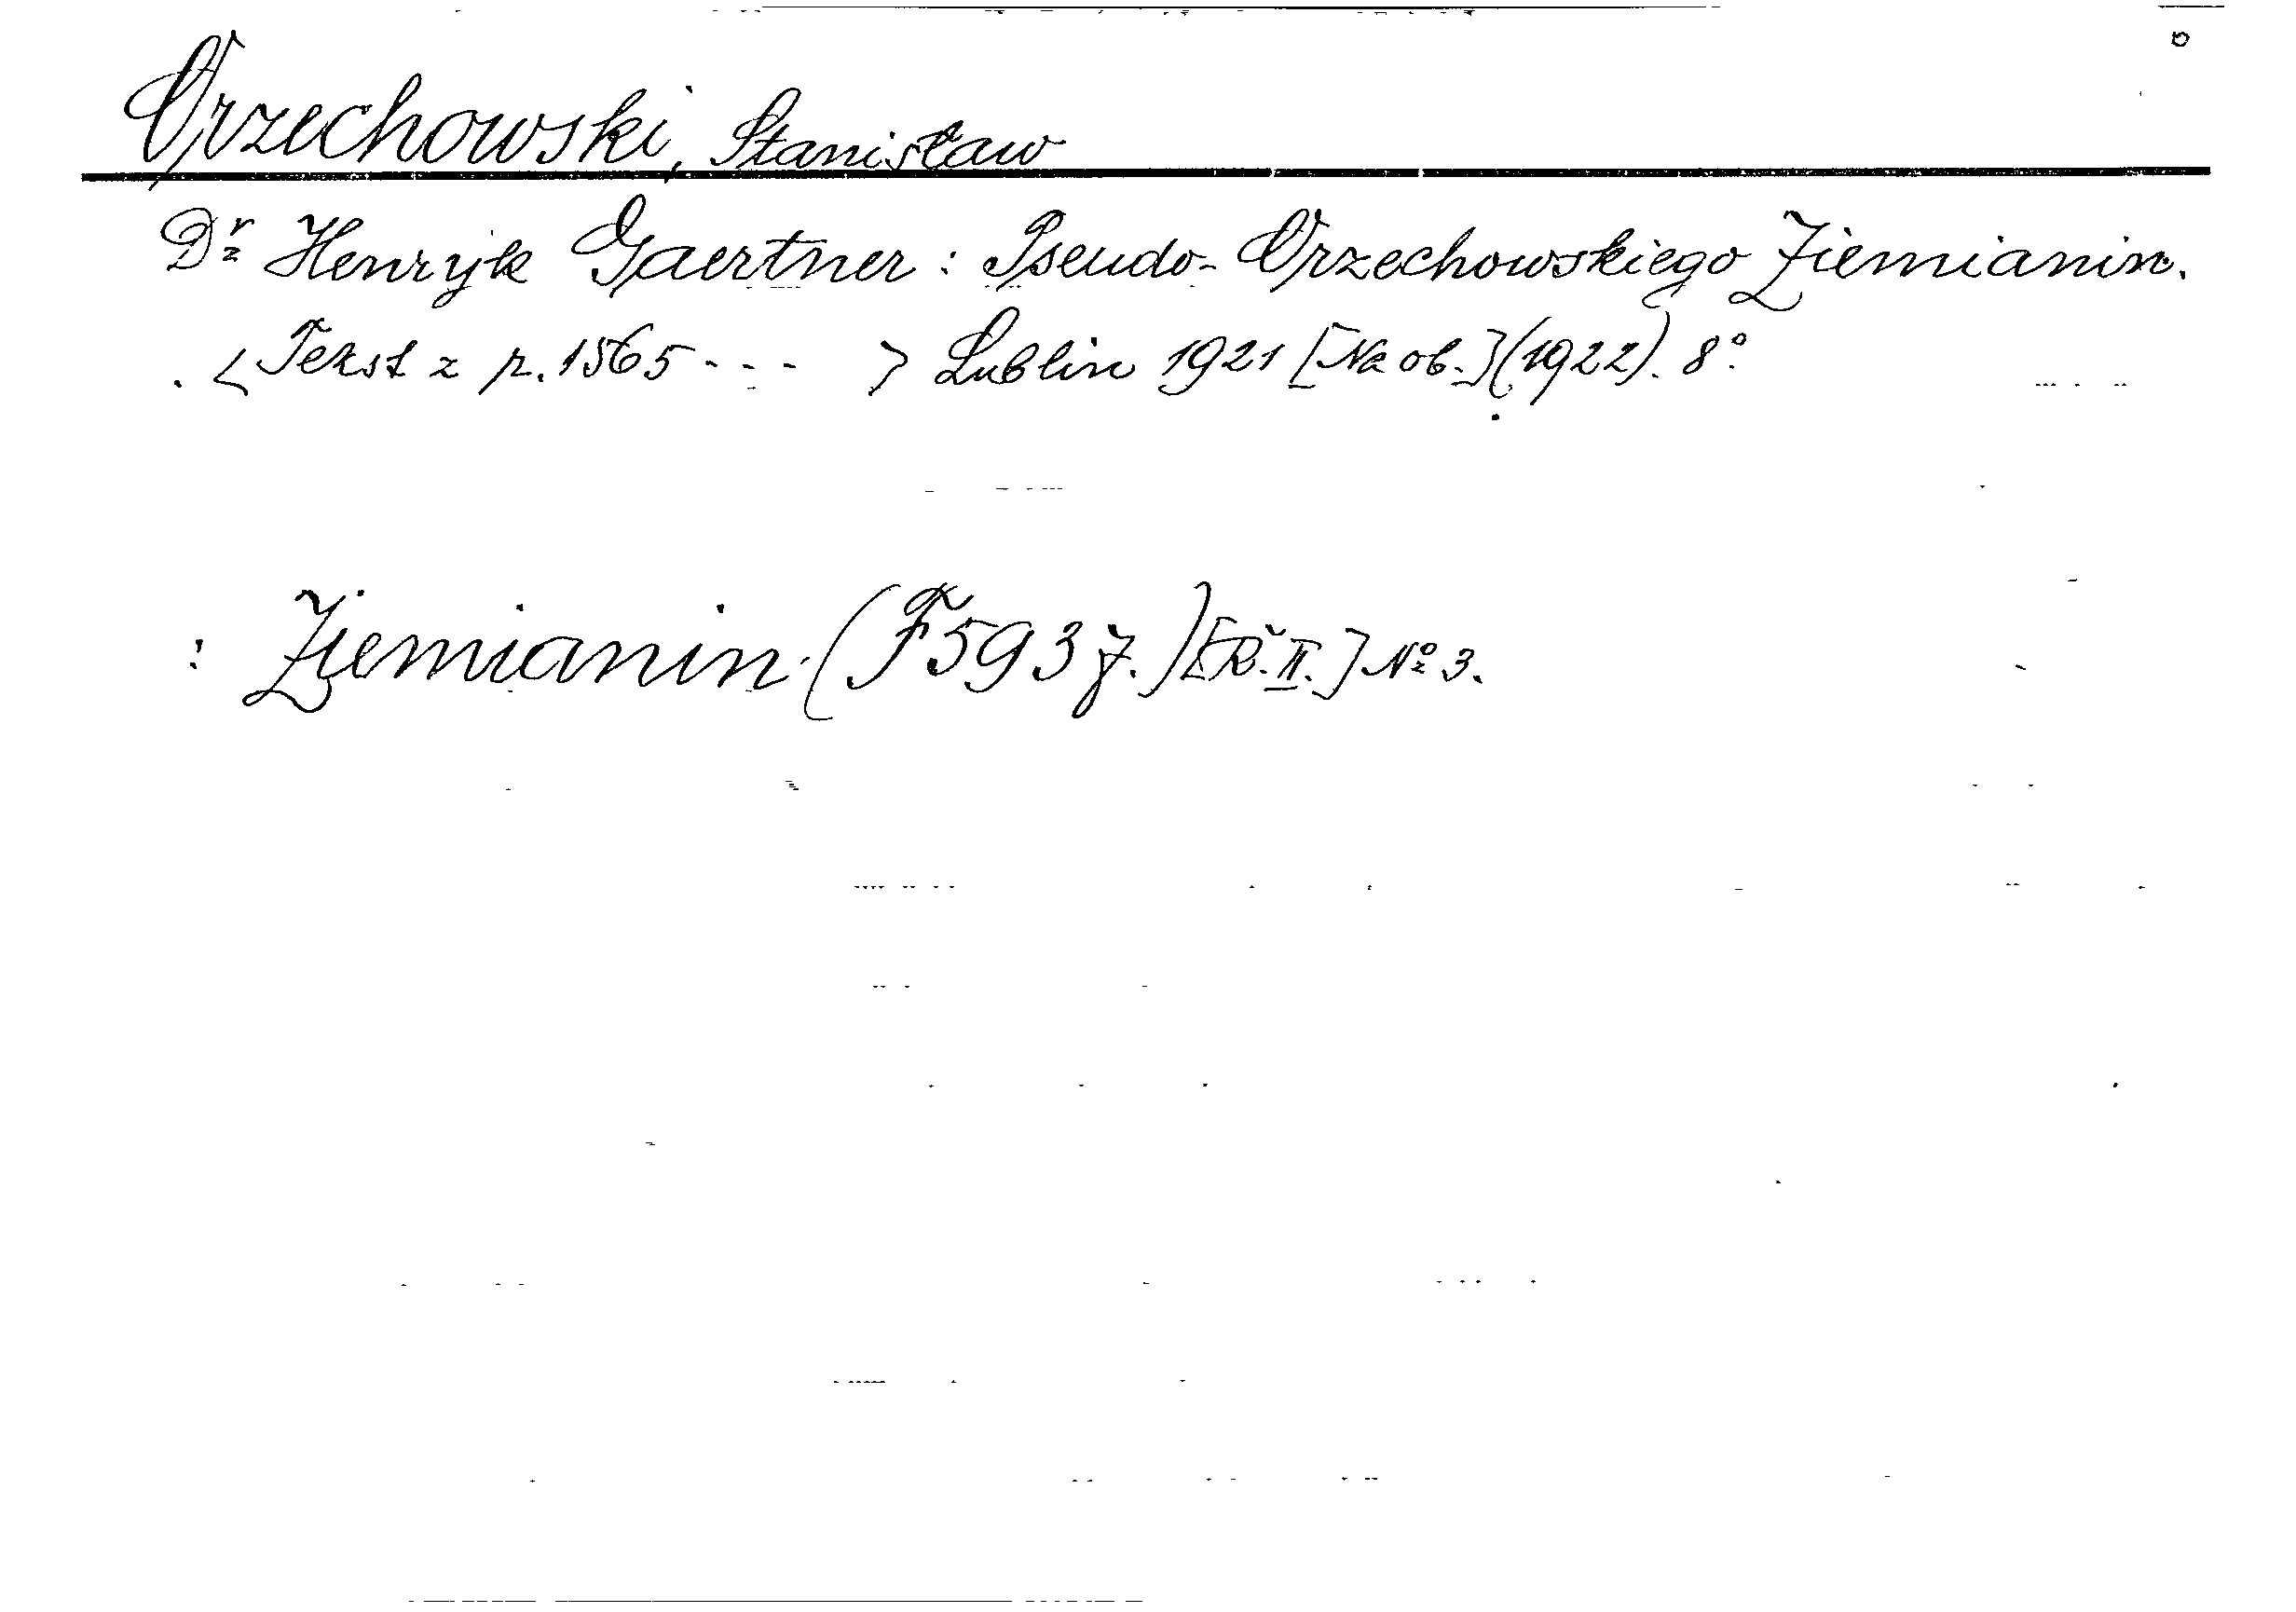 Orzechowski, Stanisław
Dr Henryk Gaertner: Pseudo-Orzechowskiego Ziemianin.
. <Tekst z r. 1565 - - - > Lublin 1921 [Na ob.](1922). 8°.
: Ziemianin. (F 593 7.) [Ř. II.] No 3.